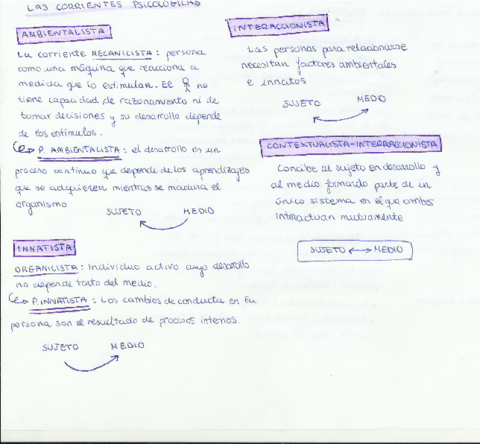 LAS CORRIENTES PSICOLÓGICAS
AMBIENTALISTA
La corriente MECANICISTA: persona
como una máquina que reacciona a
medida que lo estimulan. El no
tiene capacidad de razonamiento ni de
tomar decisiones y su desarrollo depende
de los estímulos.
P. AMBIENTALISTA: el desarrollo es un
proceso continuo que depende de los aprendizajes
que se adquieren mientras se madura el
organismo
SUJETO MEDIO
INNATISTA
ORGANICISTA: Individuo activo cuyo desarrollo
no depende tanto del medio.
P. INNATISTA: Los cambios de conducta en la
persona son el resultado de procesos internos.
SUJETO MEDIO
INTERACCIONISTA
Las personas para relacionarse
necesitan factores ambientales
e innatos
SUJETO MEDIO
CONTEXTUALISTA-INTERACCIONISTA
Concibe al sujeto en desarrollo y
al medio formando parte de un
único sistema en el que ambos
interactúan mutuamente
SUJETO ↔ MEDIO